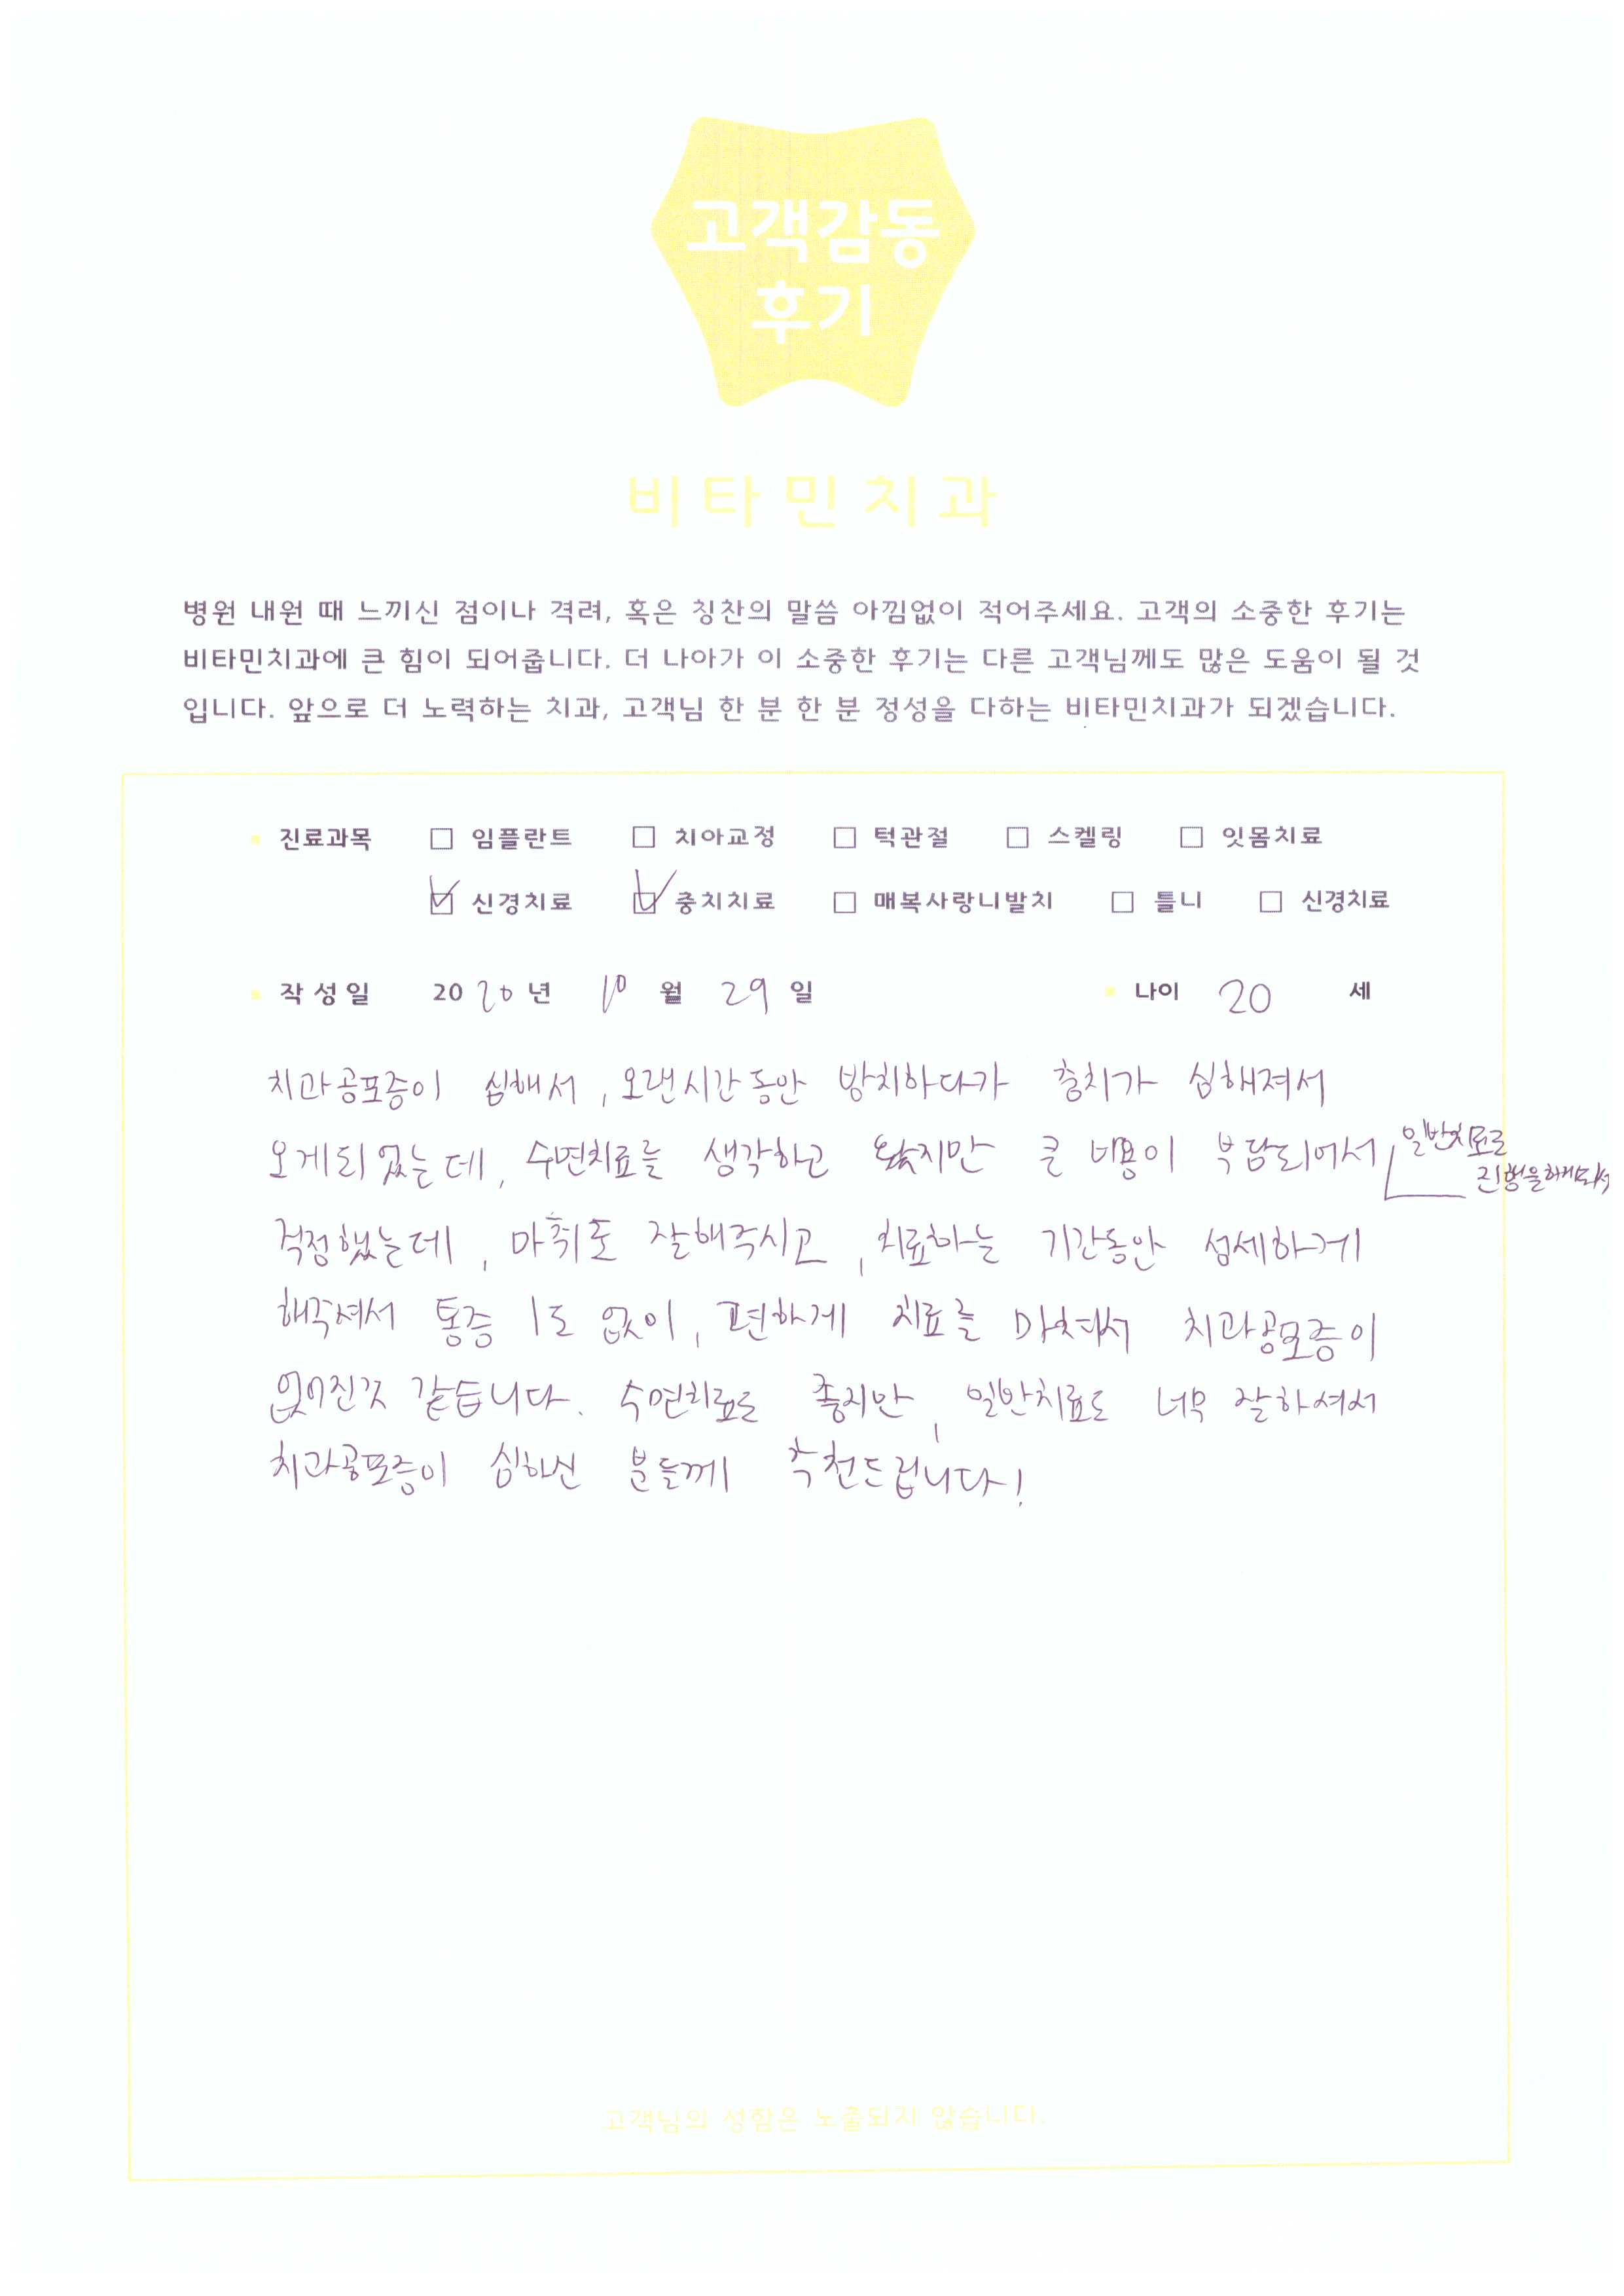 고객감동
후기
비타민치과
병원 내원 때 느끼신 점이나 격려, 혹은 칭찬의 말씀 아낌없이 적어주세요. 고객의 소중한 후기는
비타민치과에 큰 힘이 되어줍니다. 더 나아가 이 소중한 후기는 다른 고객님께도 많은 도움이 될 것
입니다. 앞으로 더 노력하는 치과, 고객님 한 분 한 분 정성을 다하는 비타민치과가 되겠습니다.
진료과목 □ 임플란트 □ 치아교정 □ 턱관절 □ 스켈링 □ 잇몸치료
☑ 신경치료 ☑ 충치치료 □ 매복사랑니발치 □ 틀니 □ 신경치료
작성일 2020년 10월 29일 나이 20 세
치과공포증이 심해서, 오랜시간동안 방치하다가 충치가 심해져서
오게되었는데, 수면치료를 생각하고 왔지만 큰 비용이 부담되어서 일반치료로
진행을하게되서
걱정했는데, 마취도 잘해주시고, 치료하는 기간동안 섬세하게
해주셔서 통증 1도 없이, 편하게 치료를 마쳐서 치과공포증이
없어진것 같습니다. 수면치료도 좋지만, 일반치료도 너무 잘하셔서
치과공포증이 심하신 분들께 추천드립니다!
고객님의 성함은 노출되지 않습니다.